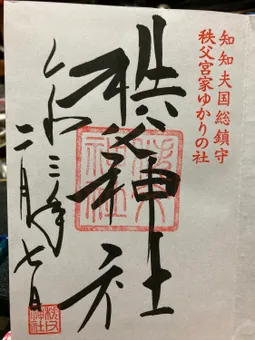 知知夫国総鎮守
秩父宮家ゆかりの社
秩父神社
令和三年
二月七日
秩父
神社